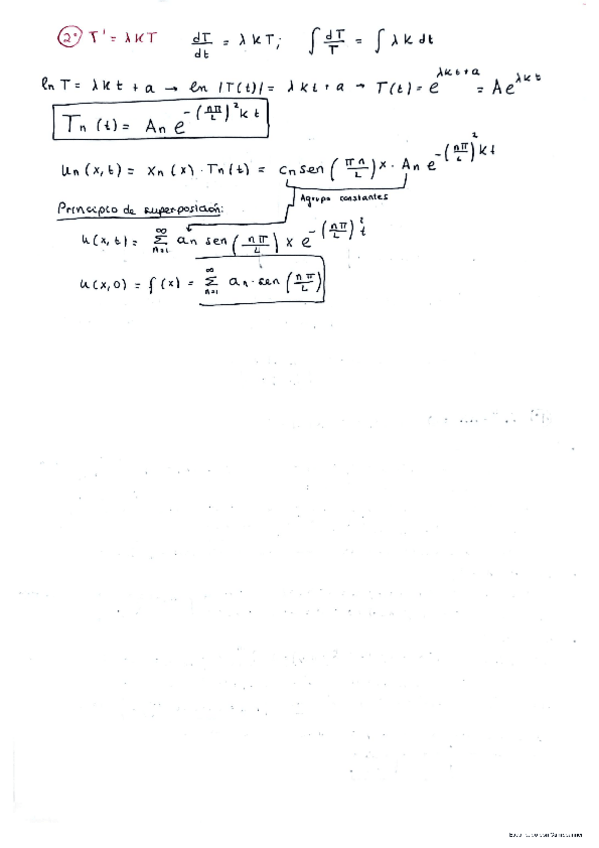 2º T' = λKT dT/dt = λKT; ∫ dT/T = ∫ λK dt
ln T = λKt + a → ln |T(t)| = λKt + a → T(t) = e^(λKt+a) = Ae^(λKt)
Tn(t) = An e^(-(nπ/L)²Kt)
un(x,t) = Xn(x) · Tn(t) = cn sen (πn/L) x · An e^(-(nπ/L)²Kt)
Agrupo constantes
Principio de superposición:
u(x,t) = ∑_(n=1)^∞ an sen (nπ/L) x e^(-(nπ/L)²t)
u(x,0) = f(x) = ∑_(n=1)^∞ an · sen (nπ/L)